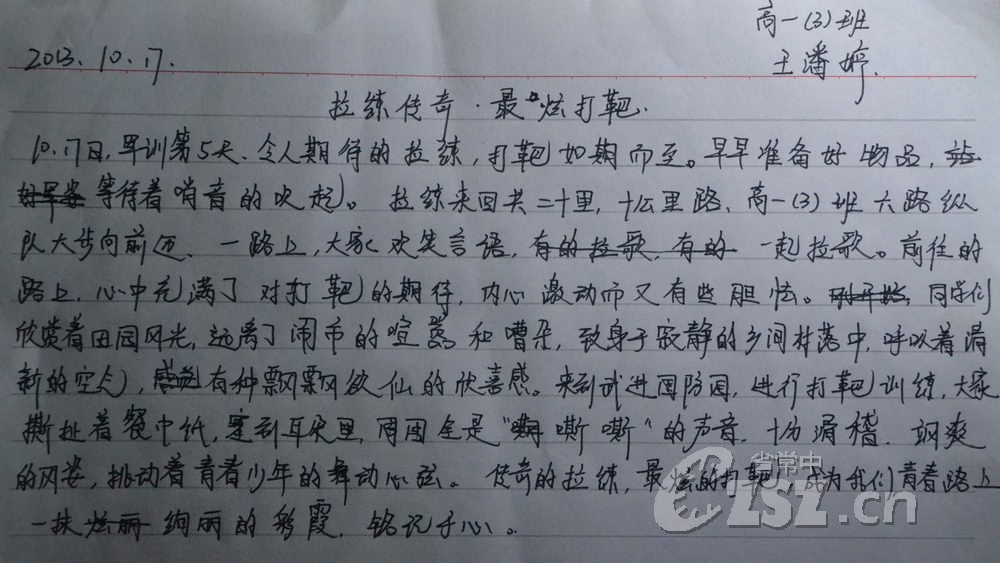 高一(3)班
2013.10.17.
王潘婷.
拉练传奇·最炫打靶.
10.17日,军训第5天.令人期待的拉练,打靶如期而至。早早准备好物品,
等待着哨音的吹起。拉练来回共二十里,十公里路、高一(3)班六路纵
队大步向前迈.一路上,大家欢笑言语,有的拉歌,有的一起拉歌。前往的
路上,心中充满了对打靶的期待,内心激动而又有些胆怯。同学们
欣赏着田园风光,远离了闹市的喧嚣和嘈杂,致身于寂静的乡间村落中,呼吸着清
新的空气,有种飘飘欲仙的欣喜感。来到武进国防园,进行打靶训练,大家
撕扯着餐巾纸,塞到耳朵里,周围全是“嘶嘶”的声音.十分滑稽.飒爽
的风姿,挑动着青春少年的舞动心弦。传奇的拉练,最炫的打靶,成为我们青春路上
一抹炫丽绚丽的彩霞.铭记于心。
省常中
CZSZ.cn